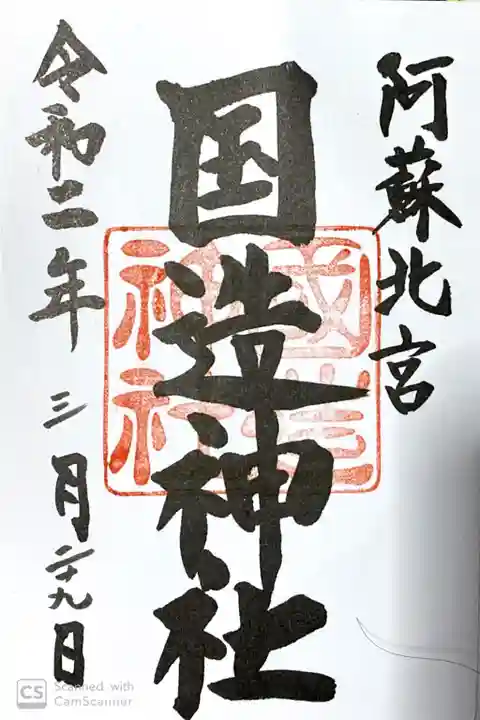 阿蘇北宮
国造神社
國造神社
令和二年三月二十九日
CS Scanned with
CamScanner